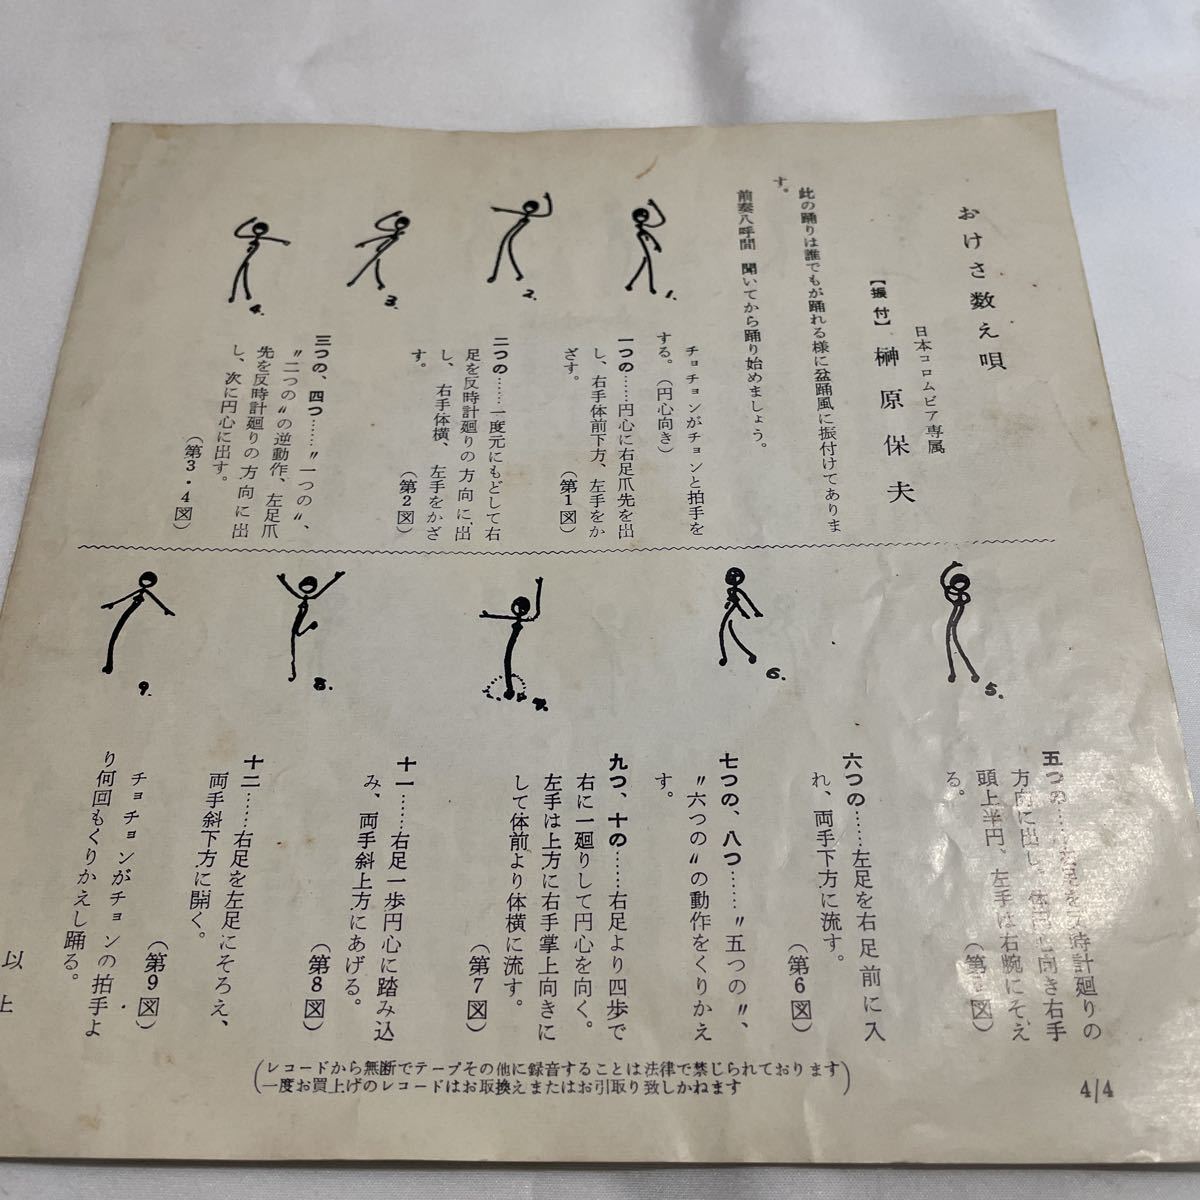 おけさ数え唄
日本コロムビア専属
【振付】 榊原保夫
此の踊りは誰でもが踊れる様に盆踊風に振付けてありま
す。
前奏八呼間 聞いてから踊り始めましょう。
チョチョンがチョンと拍手を
する。(円心向き)
一つの……円心に右足爪先を出
し、右手体前下方、左手をか
ざす。
(第1図)
二つの……一度元にもどして右
足を反時計廻りの方向に出
し、右手体横、左手をかざ
す。
(第2図)
三つの、四つ……〝一つの〟、
〝二つの〟の逆動作、左足爪
先を反時計廻りの方向に出
し、次に円心に出す。
(第3・4図)
1.
2.
3.
4.
5.
6.
7.
8.
9.
五つの……足を反時計廻りの
方向に出し、体円心向き右手
頭上半円、左手は右腕にそえ
る。
六つの……左足を右足前に入
れ、両手下方に流す。
(第6図)
七つの、八つ……〝五つの〟、
〝六つの〟の動作をくりかえ
す。
九つ、十の……右足より四歩で
右に一廻りして円心を向く。
左手は上方に右手掌上向きに
して体前より体横に流す。
(第7図)
十一……右足一歩円心に踏み込
み、両手斜上方にあげる。
(第8図)
十二……右足を左足にそろえ、
両手斜下方に開く。
(第9図)
チョチョンがチョンの拍手よ
り何回もくりかえし踊る。
以上
(レコードから無断でテープその他に録音することは法律で禁じられております
一度お買上げのレコードはお取換えまたはお引取り致しかねます)
4/4